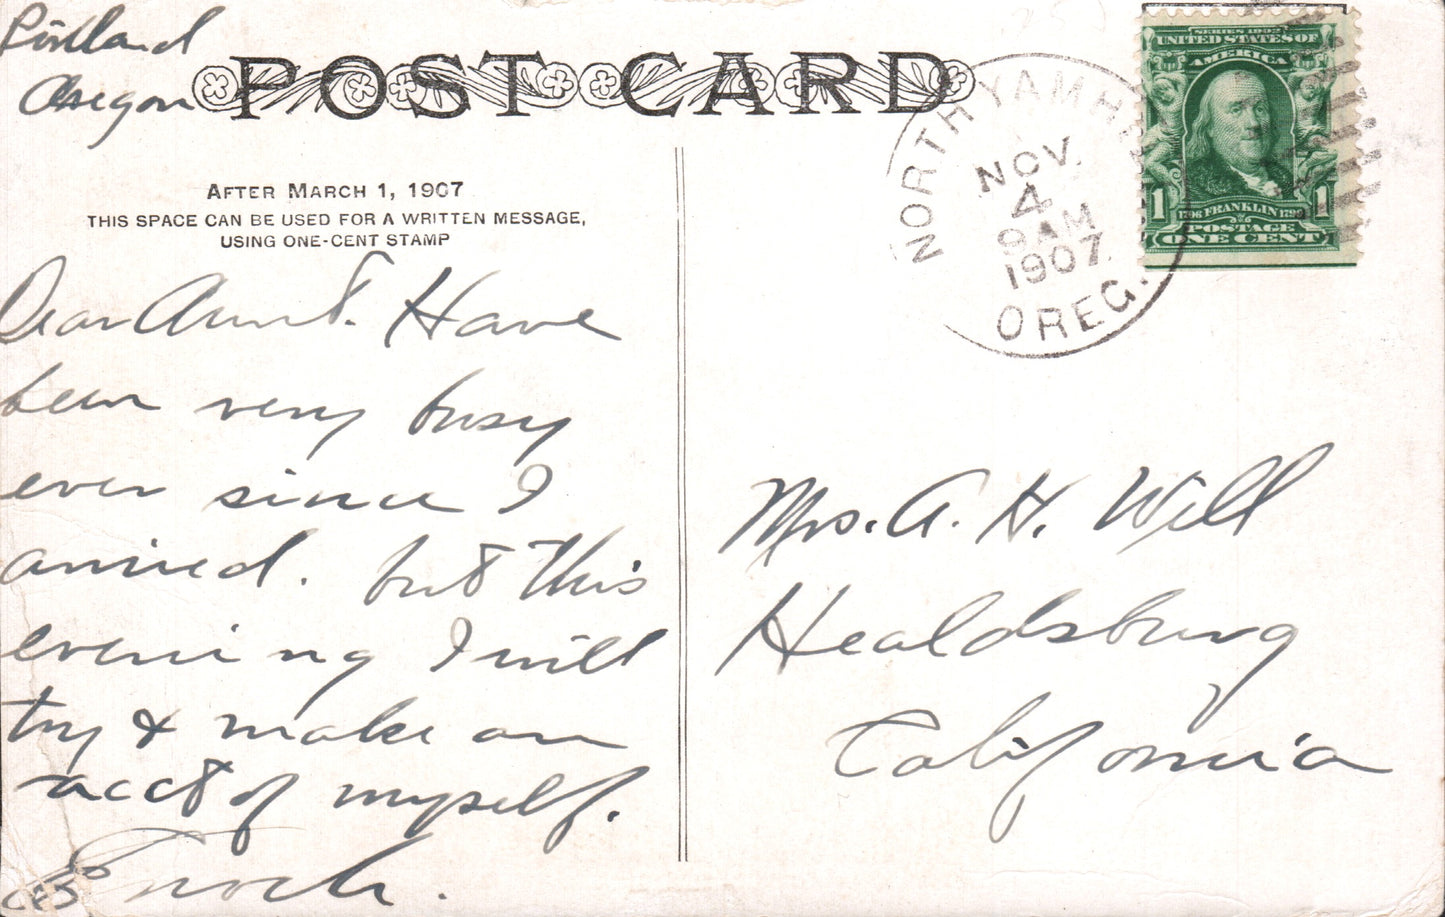 Portland
Oregon
POST CARD
AFTER MARCH 1, 1907
THIS SPACE CAN BE USED FOR A WRITTEN MESSAGE,
USING ONE-CENT STAMP
Dear Aunt. Have
been very busy
ever since I
arrived. but this
evening I will
try & make an
acct of myself.
Enoch.
NORTH YAMH
NOV.
4
9 AM
1907
OREG.
SERIES 1902
UNITED STATES OF
AMERICA
1 1706 FRANKLIN 1790 1
POSTAGE
ONE CENT
Mrs. A. H. Will
Healdsburg
California